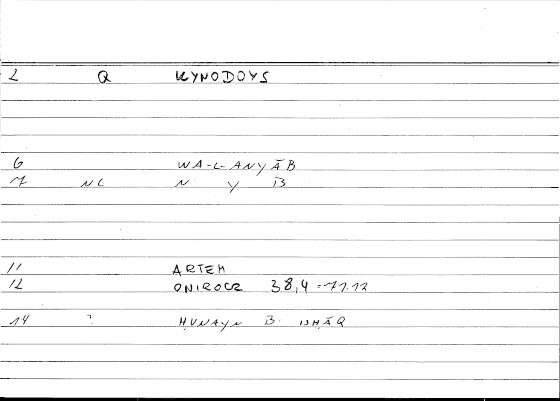 2 Q KYNODOYS
6 WA-L-ANYĀB
7 NC N Y B
11 ARTEM
12 ONIROCR 38,4 -
14 ? ḤUNAYN B. ISḤĀQ